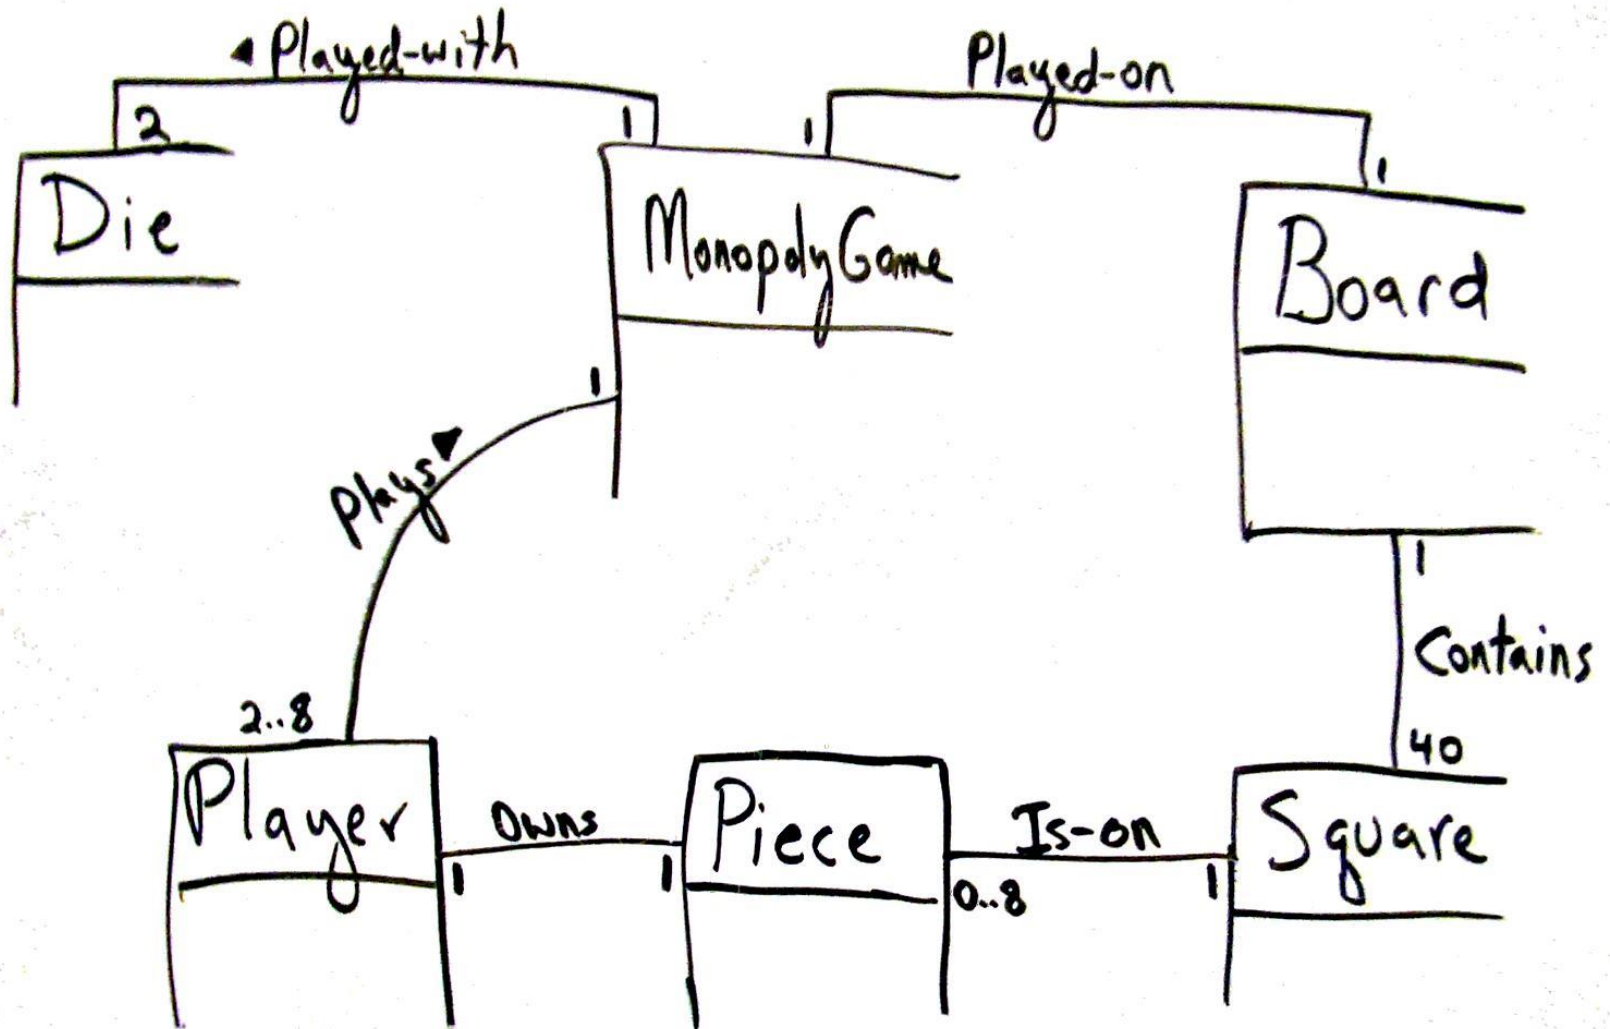 ◄ Played-with
Played-on
2
1
1
1
Die
MonopolyGame
Board
1
Plays ►
1
Contains
2..8
40
Player
Owns
Piece
Is-on
Square
1
1
0..8
1